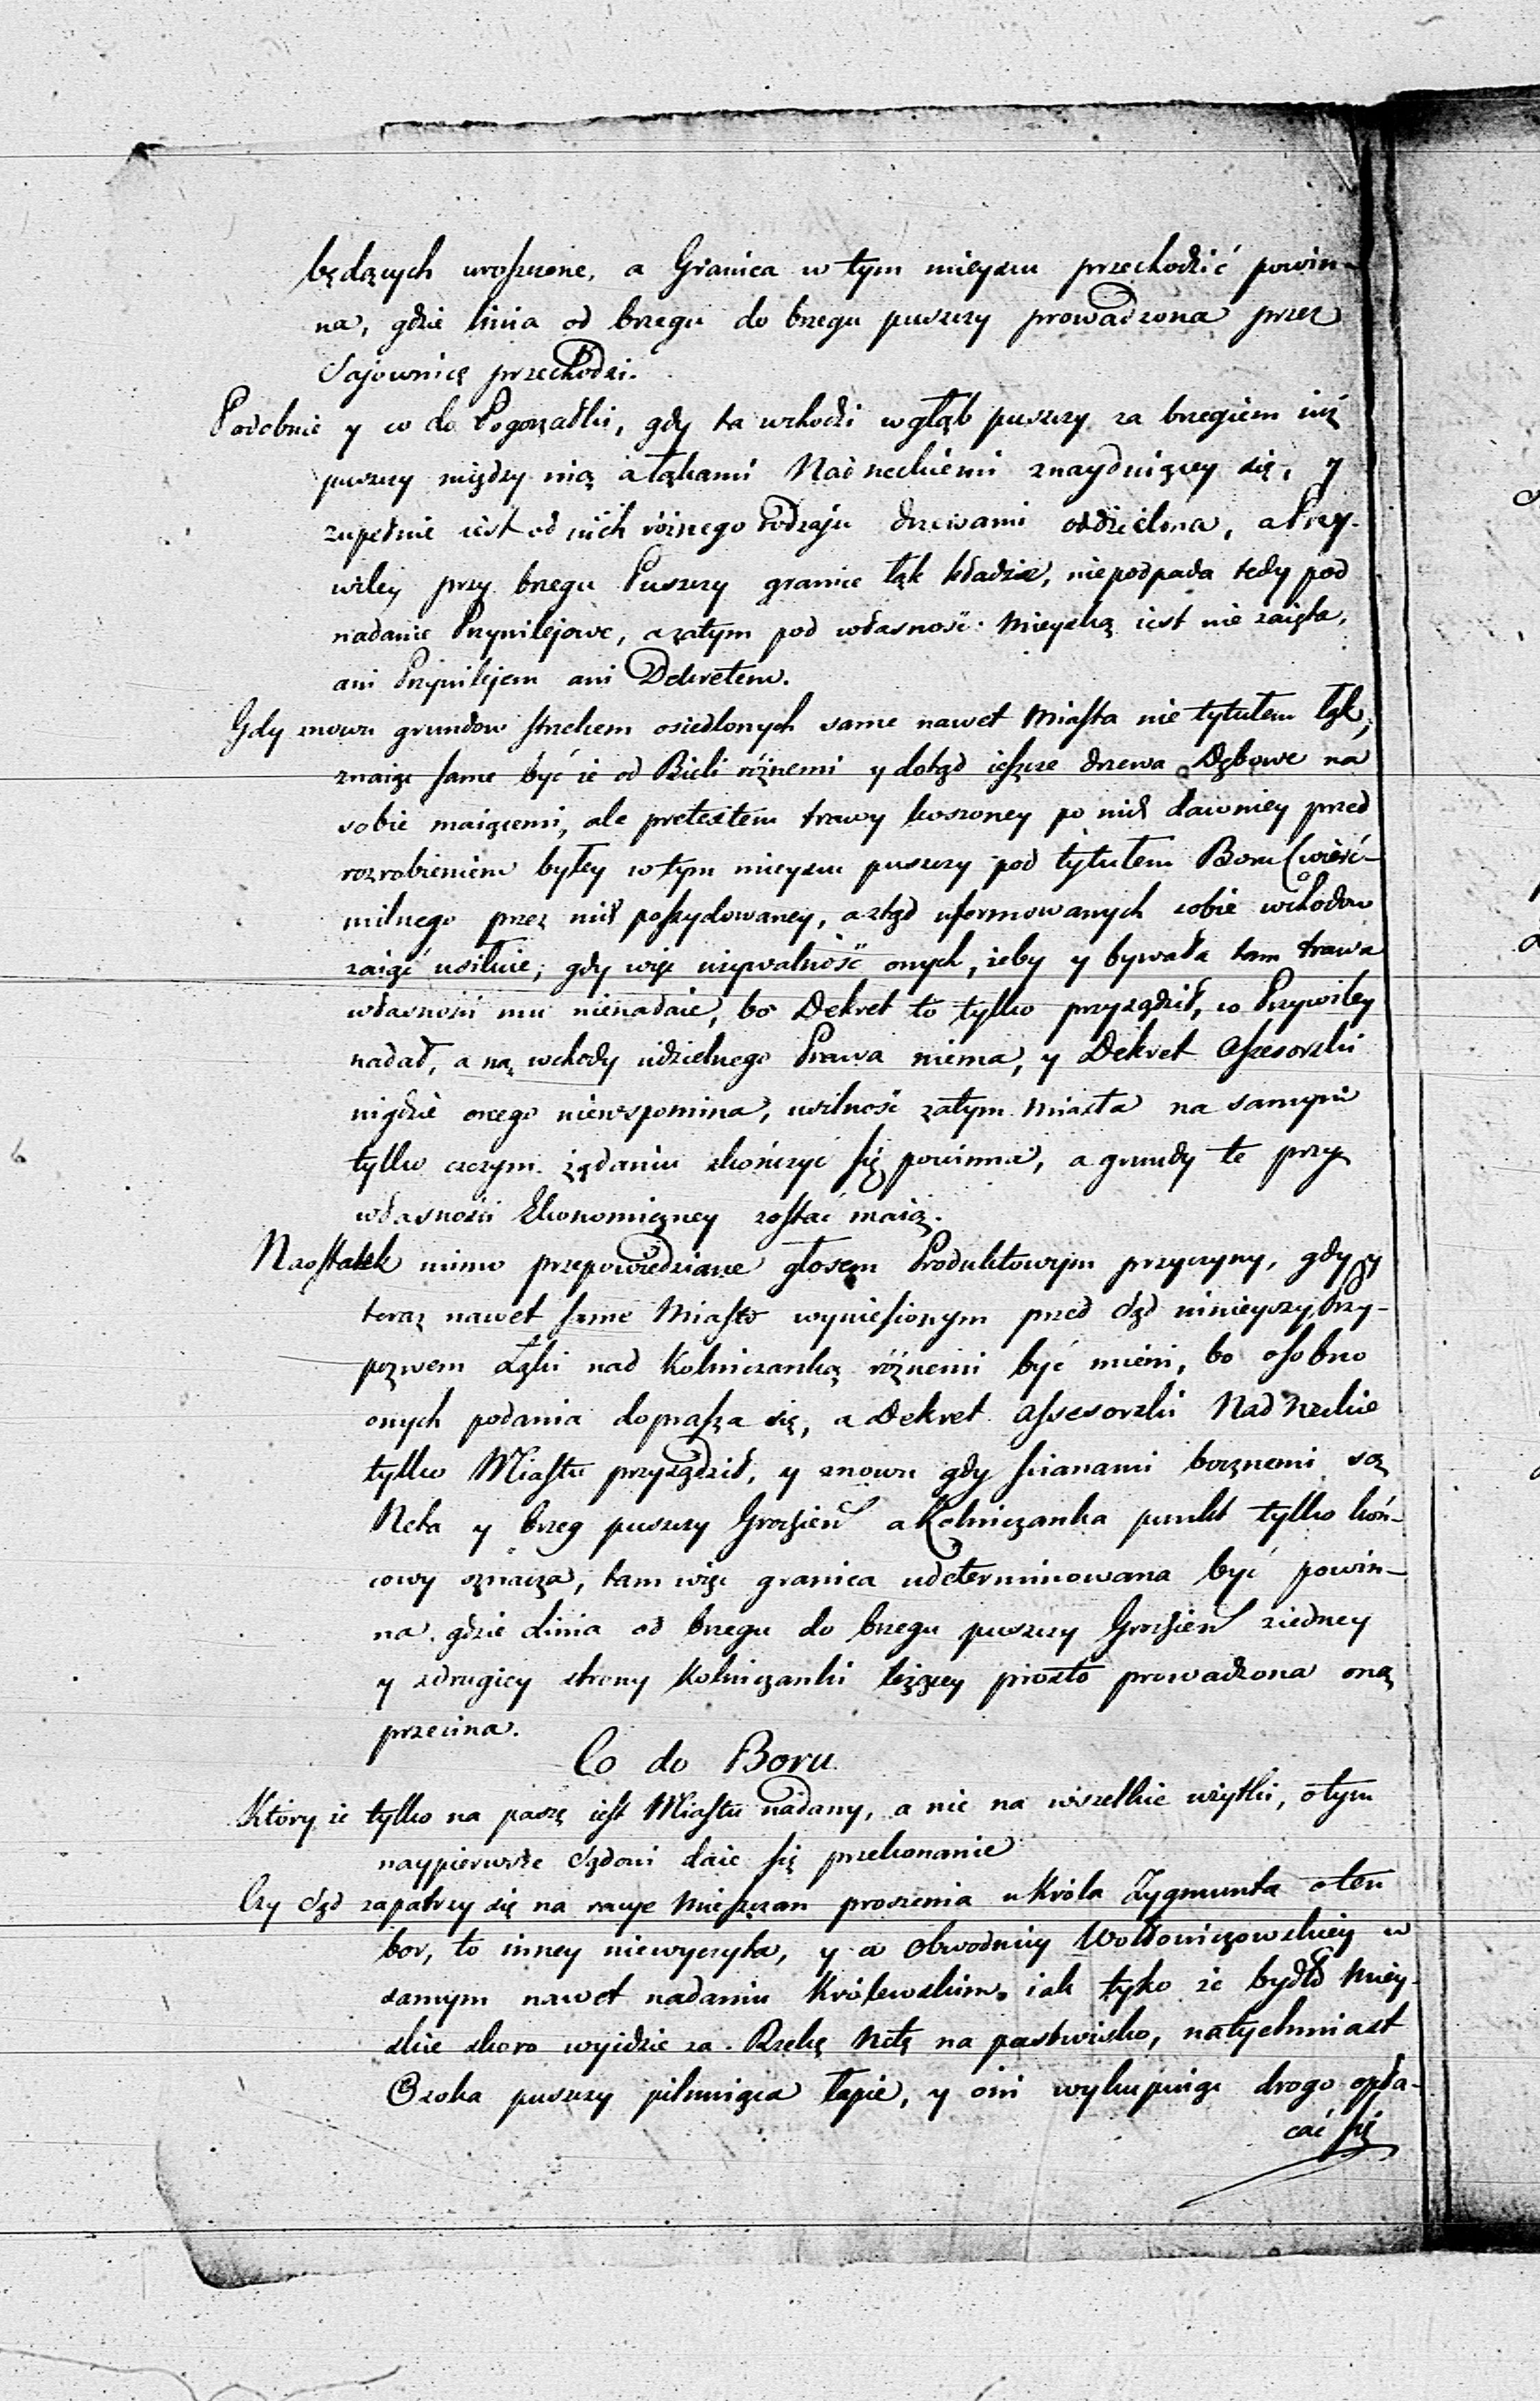 będących uroszczone, a Granica w tym mieyscu przechodzić powin-
na, gdzie linia od brzegu do brzegu puszczy prowadzona przez
Sajownicę przechodzi.
Podobnie y co do Pogorzałki, gdy ta wchodzi w głąb puszczy za brzegiem iuż
puszczy między nią a łąkami Nad neckiemi znayduiącey się, y
zupełnie iest od nich różnego rodzaju drzewami oddzielona, a Przy-
wiley przy brzegu Puszczy granice łąk kładzie, niepodpada tedy pod
nadanie Przywilejowe, a zatym pod własność Mieyską iest nie zaięta,
ani Przywilejem ani Dekretem.
Gdy znowu gruntow osiedlonych same nawet Miasta nie tytułem łąk,
znaiąc same być ie od Bieli różnemi y dotąd ieszcze drzewa Dębowe na
sobie maiącemi, ale pretextem trawy koszoney po nich dawniey przed
rozrobieniem byłey w tym mieyscu puszczy pod tytułem Boru ćwierć-
milnego przez nich possydowaney, a ztąd uformowanych sobie wchodow
zaiąć usiłuie; gdy więc używalność onych, żeby y bywała tam trawa
własności mu nienadaie, bo Dekret to tylko przysądził, co Przywiley
nadał, a na wchody udzielnego Prawa niema, y Dekret Assesorski
nigdzie onego niewspomina, usilność zatym Miasta na samym
tylko czczym żądaniu skończyć się powinna, a grunty te przy
własności Ekonomiczney zostać maią.
Nazostatek mimo przepowiedziane głosem Produktowym przyczyny, gdy y
teraz nawet same Miasto wyniesionym przed Sąd ninieyszy Przy-
pozwem Łąki nad Kolniczanką różnemi być mieni, bo osobno
onych podania doprasza się, a Dekret Assesorski Nad Neckie
tylko Miastu przysądził, y znowu gdy scianami bocznemi są
Neta y brzeg puszczy a Kolniczanka punkt tylko koń-
cowy oznacza, tam więc granica udeterminowana być powin-
na gdzie Linia od brzegu do brzegu puszczy z iedney
y z drugiey strony Kolniczanki leżącey prosto prowadzona onę
przecina.
Co do Boru
Ktory że tylko na paszę iest Miastu nadany, a nie na wszelkie użytki, o tym
naypierwsze Sądowi daie się przekonanie
Czy Sąd zapatrzy się na racye Mieszczan proszenia u Króla Zygmunta o ten
bor, to inney niewyczyta, y a Obwodnicy Wołłowiczowskiey w
samym nawet nadaniu Królewskim, iak tyko że bydło Miey-
skie skoro wyidzie za Rzekę Netę na pastwisko, natychmiast
Osoka puszczy pilnuiąca łapie, y oni wykupuiąc drogo opła-
cać się